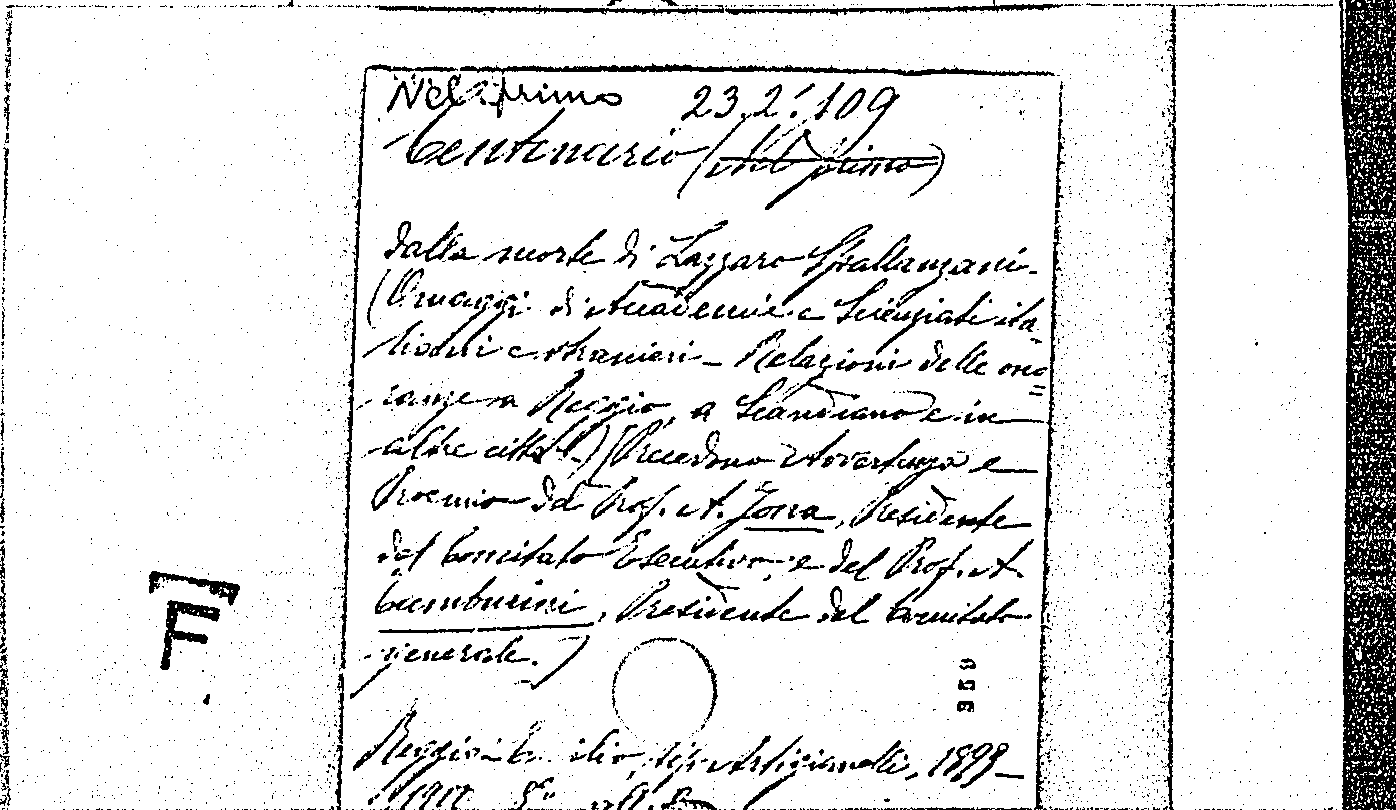 Nel primo 23.2.109
Centenario (nel primo)
dalla morte di Lazzaro Spallanzani.
(Omaggi di Accademie e Scienziati ita=
liani e stranieri – Relazioni delle ono=
ranze a Reggio, a Scandiano e in
altre città.) (Precedono Avvertenza e
Proemio del Prof. A. Jona, Presidente
del Comitato Esecutivo, e del Prof. A.
Tamburini, Presidente del Comitato
generale.)
F
Reggio-Emilia, tip. Artigianelli, 1899–